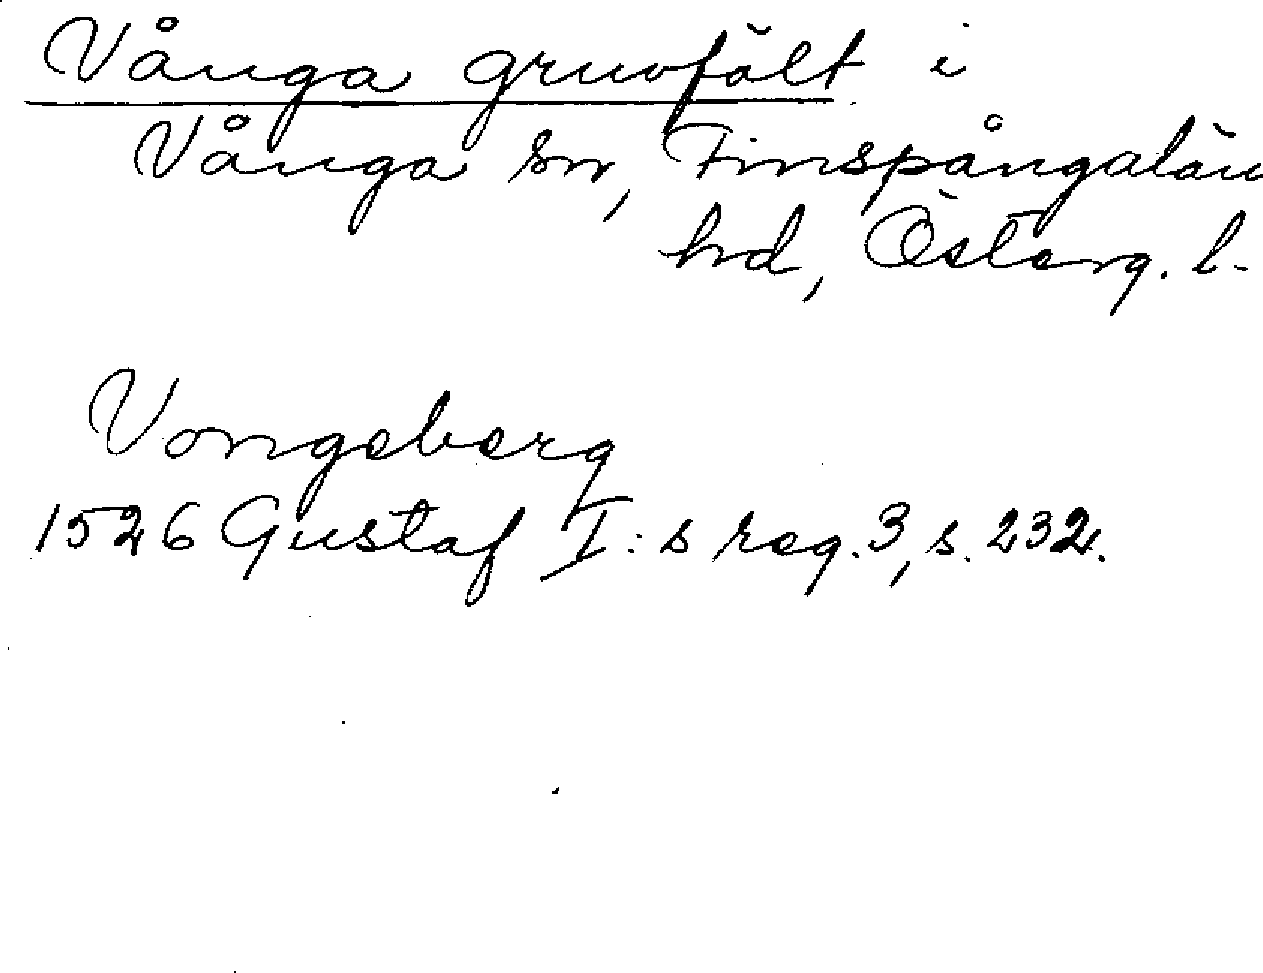 Vånga gruvfält i
Vånga sn, Finspångalän
hd, Österg. l.
Vongeberg
1526 Gustaf I:s reg. 3, s. 232.